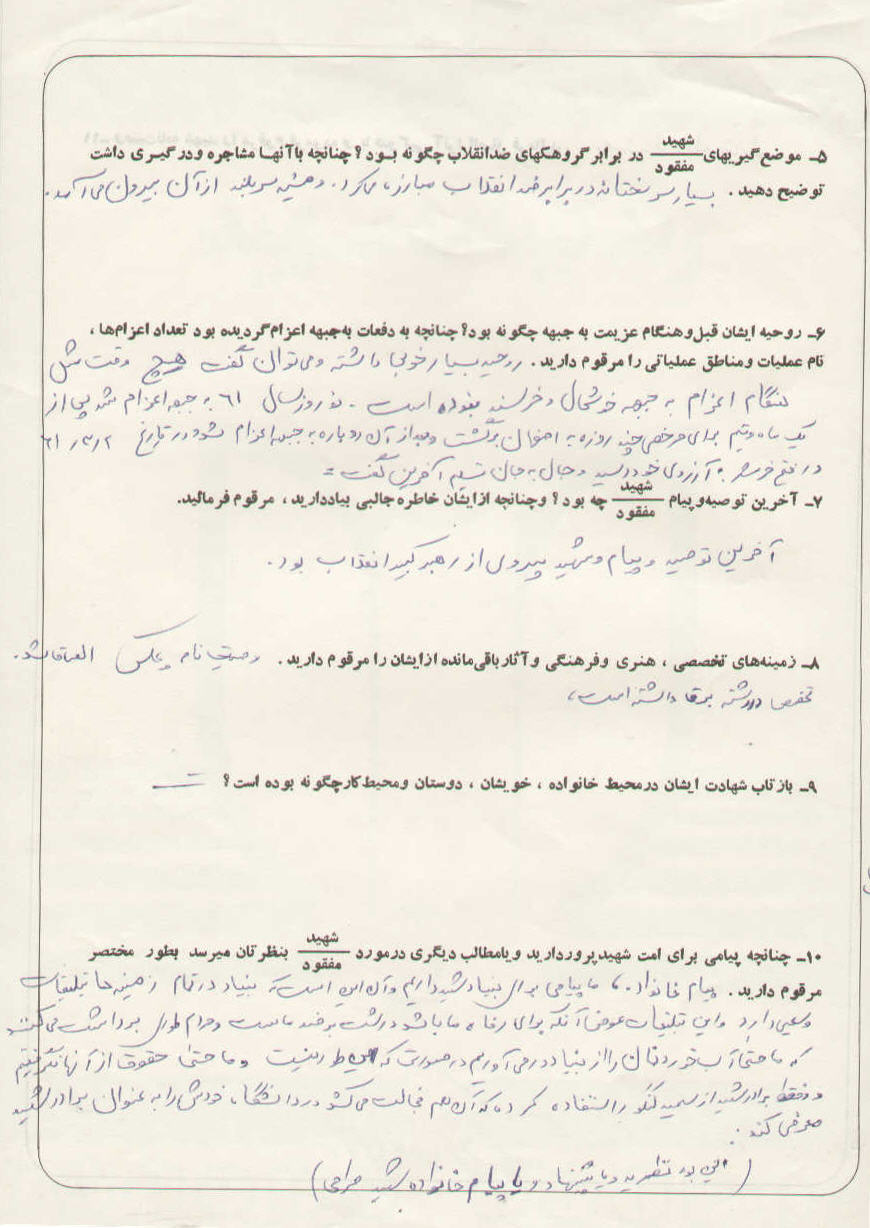 ۵ـ موضع‌گیریهای شهید/مفقود در برابر گروهکهای ضدانقلاب چگونه بود؟ چنانچه باآنها مشاجره ودرگیری داشت
توضیح دهید. بسیار سرسختانه در برابر ضد انقلاب مبارزه میکرد. و همیشه سربلند از آن بیرون می آمد.
۶ـ روحیه ایشان قبل‌وهنگام عزیمت به جبهه چگونه بود؟ چنانچه به دفعات به‌جبهه اعزام‌گردیده بود تعداد اعزام‌ها،
نام عملیات ومناطق عملیاتی را مرقوم دارید. روحیه بسیار خوبی داشته و می‌توان گفت هیچ وقت مثل
هنگام اعزام به جبهه خوشحال و خرسند نبوده است. نوروز سال ۶۱ به جبهه اعزام شد پس از
یک ماه ونیم برای مرخصی چند روزه به اصفهان برگشت و بعد از آن دوباره به جبهه اعزام شد و در تاریخ ۶۱/۳/۲
در فتح خرمشهر به آرزوی خود رسید و جان به جان تسلیم آفرین گفت =
۷ـ آخرین توصیه‌وپیام شهید/مفقود چه بود؟ وچنانچه ازایشان خاطره جالبی بیاددارید، مرقوم فرمائید.
آخرین توصیه و پیام شهید پیروی از رهبر کبیر انقلاب بود.
۸ـ زمینه‌های تخصصی، هنری وفرهنگی وآثارباقی‌مانده ازایشان را مرقوم دارید. وصیت نامه و عکس الصاق شد.
تخصص در رشته برق داشته است،
۹ـ بازتاب شهادت ایشان درمحیط خانواده، خویشان، دوستان ومحیط‌کارچگونه بوده است؟ ــ
۱۰ـ چنانچه پیامی برای امت شهیدپرور دارید ویامطالب دیگری درمورد شهید/مفقود بنظرتان میرسد بطور مختصر
مرقوم دارید. پیام خانواده، ما پیامی برای بنیاد شهید داریم و آن این است که بنیاد در تمام زمینه ها تبلیغات
وسیعی دارد و این تبلیغات عوض آنکه برای رفاه ما باشد درست برضد ماست و مردم طوری برداشت می‌کنند
که ما حتی آب خوردنمان را از بنیاد در می آوریم در صورتی که اینطور نیست و ما حتی حقوق از آنها نگرفتیم
و فقط برادر شهید از سهمیه کنکور استفاده کرده که آن هم خجالت می‌کشد در دانشگاه خودش را به عنوان برادر شهید
معرفی کند.
(این بود نظریه و یا پیشنهاد و یا پیام خانواده شهید)